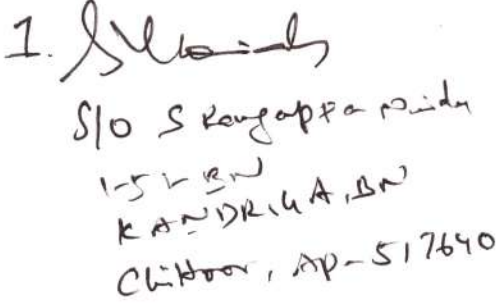 1.
S/O S Rangappa Naidu
1-52 BN
KANDRIGA, BN
Chittoor, AP-517640